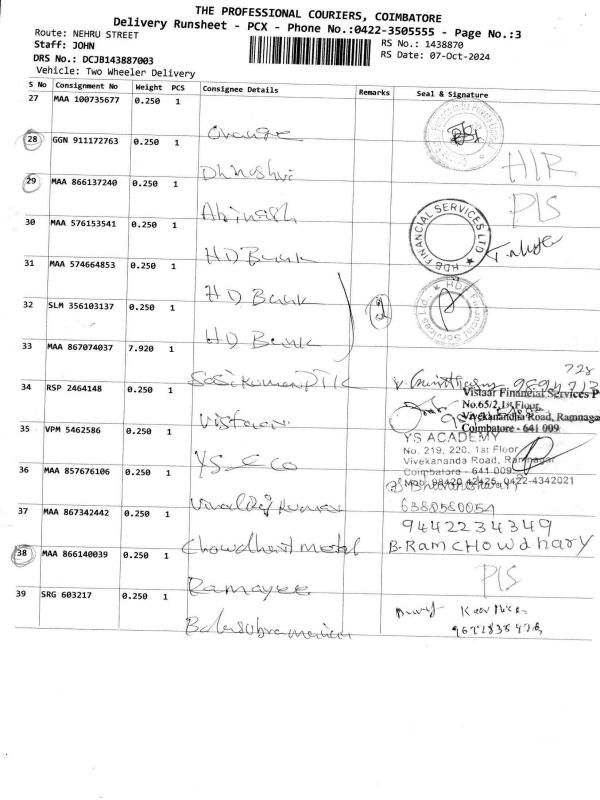 THE PROFESSIONAL COURIERS, COIMBATORE
Delivery Runsheet - PCX - Phone No.:0422-3505555 - Page No.:3
Route: NEHRU STREET
RS No.: 1438870
Staff: JOHN
RS Date: 07-Oct-2024
DRS No.: DCJB143887003
Vehicle: Two Wheeler Delivery
S No Consignment No Weight PCS Consignee Details Remarks Seal & Signature
27 MAA 100735677 0.250 1 Orange
28 GGN 911172763 0.250 1 Dhnushvi H/R
29 MAA 866137240 0.250 1 Abinash PLS
30 MAA 576153541 0.250 1 HD Bank HDB FINANCIAL SERVICES LTD
31 MAA 574664853 0.250 1 HD Bank
32 SLM 356103137 0.250 1 HD Bank 2
33 MAA 867074037 7.920 1
728
34 RSP 2464148 0.250 1 Vistaar
Vistaar Financial Services P
No.65/2,1st Floor,
Vivekanandha Road, Ramnaga
Coimbatore - 641 009
35 VPM 5462586 0.250 1 YS Eco
YS ACADEMY
No. 219, 220, 1st Floor
Vivekananda Road, Ramnagar
Coimbatore - 641 009
Mob: 98420 42425, 0422-4342021
36 MAA 857676106 0.250 1
6380580054
37 MAA 867342442 0.250 1 Chowdhari metal
9442234349
B.RAM CHOWDHARY
38 MAA 866140039 0.250 1 Ramayee PLS
39 SRG 603217 0.250 1 Balasubramaniam